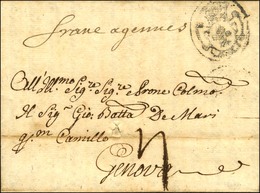 franc agennes
All'Ill.mo Sig.re Sig.re Prone Colmo
Il Sig.r Gio: Batta De Mari
q.m Camillo
Genova